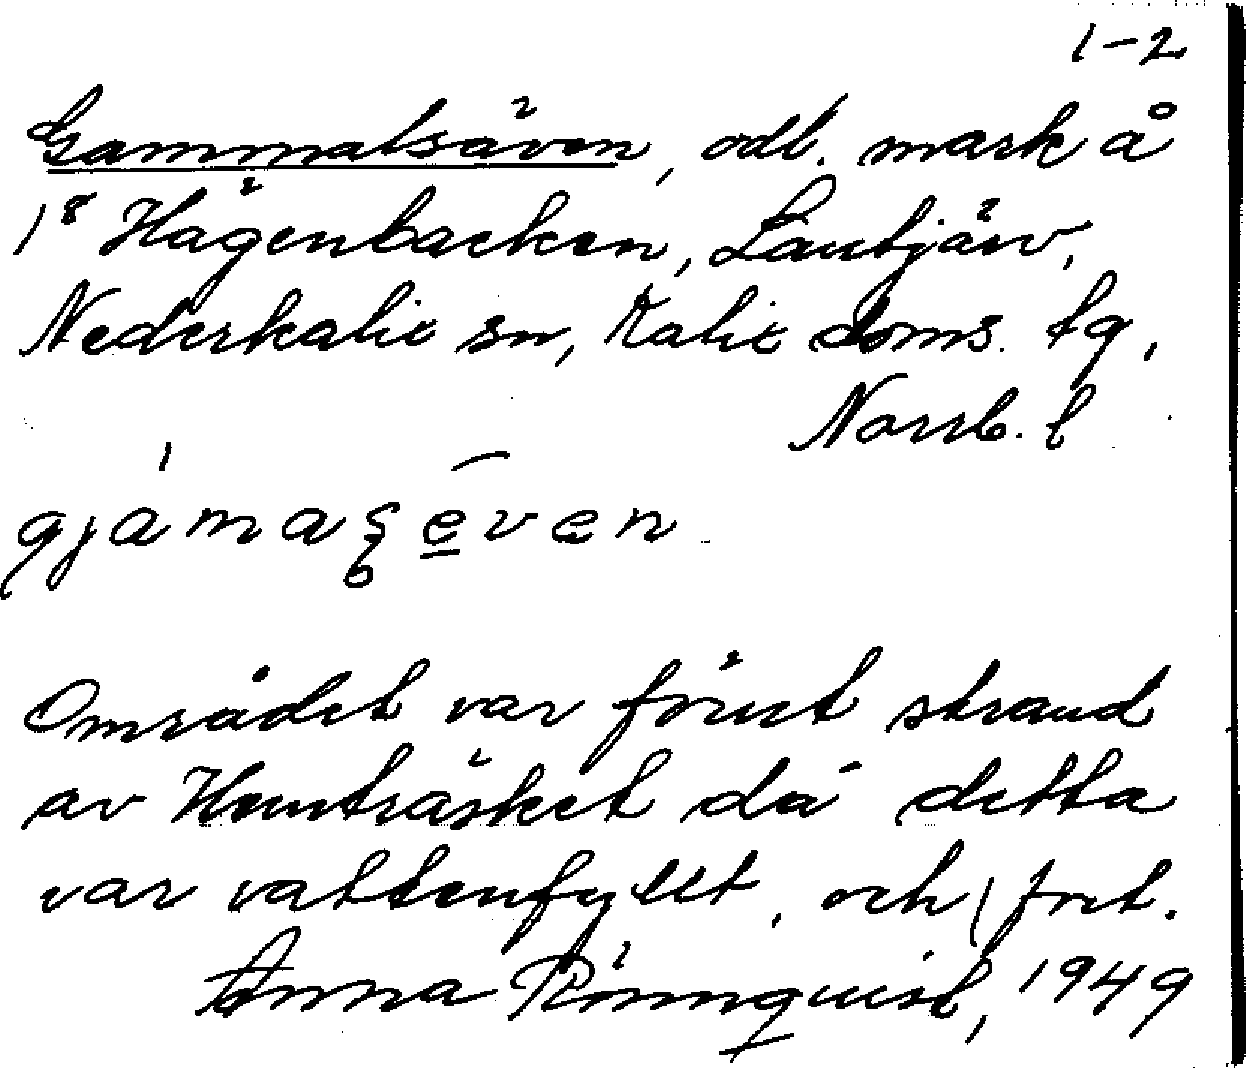 1-2
Gammalsäven, odl. mark å
1⁸ Hägenbacken, Lantjärv,
Nederkalix sn, Kalix doms. tg,
Norrb. l
gjámaʂēven
Området var förut strand
av Hemträsket då detta
var vattenfyllt. och
Anna Rönnquist, 1949